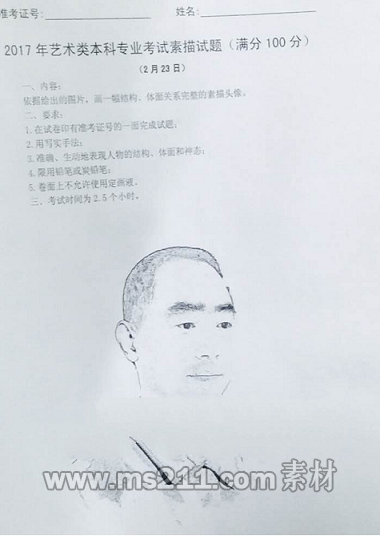 准考证号：
姓名：
2017 年艺术类本科专业考试素描试题（满分 100 分）
（2 月 23 日）
一、内容：
依据给出的图片，画一幅结构、体面关系完整的素描头像。
二、要求：
1.在试卷印有准考证号的一面完成试题；
2.用写实手法；
3.准确、生动地表现人物的结构、体面和神态；
4.限用铅笔或炭铅笔；
5.卷面上不允许使用定画液。
三、考试时间为 2.5 个小时。
www.ms211.com 素材